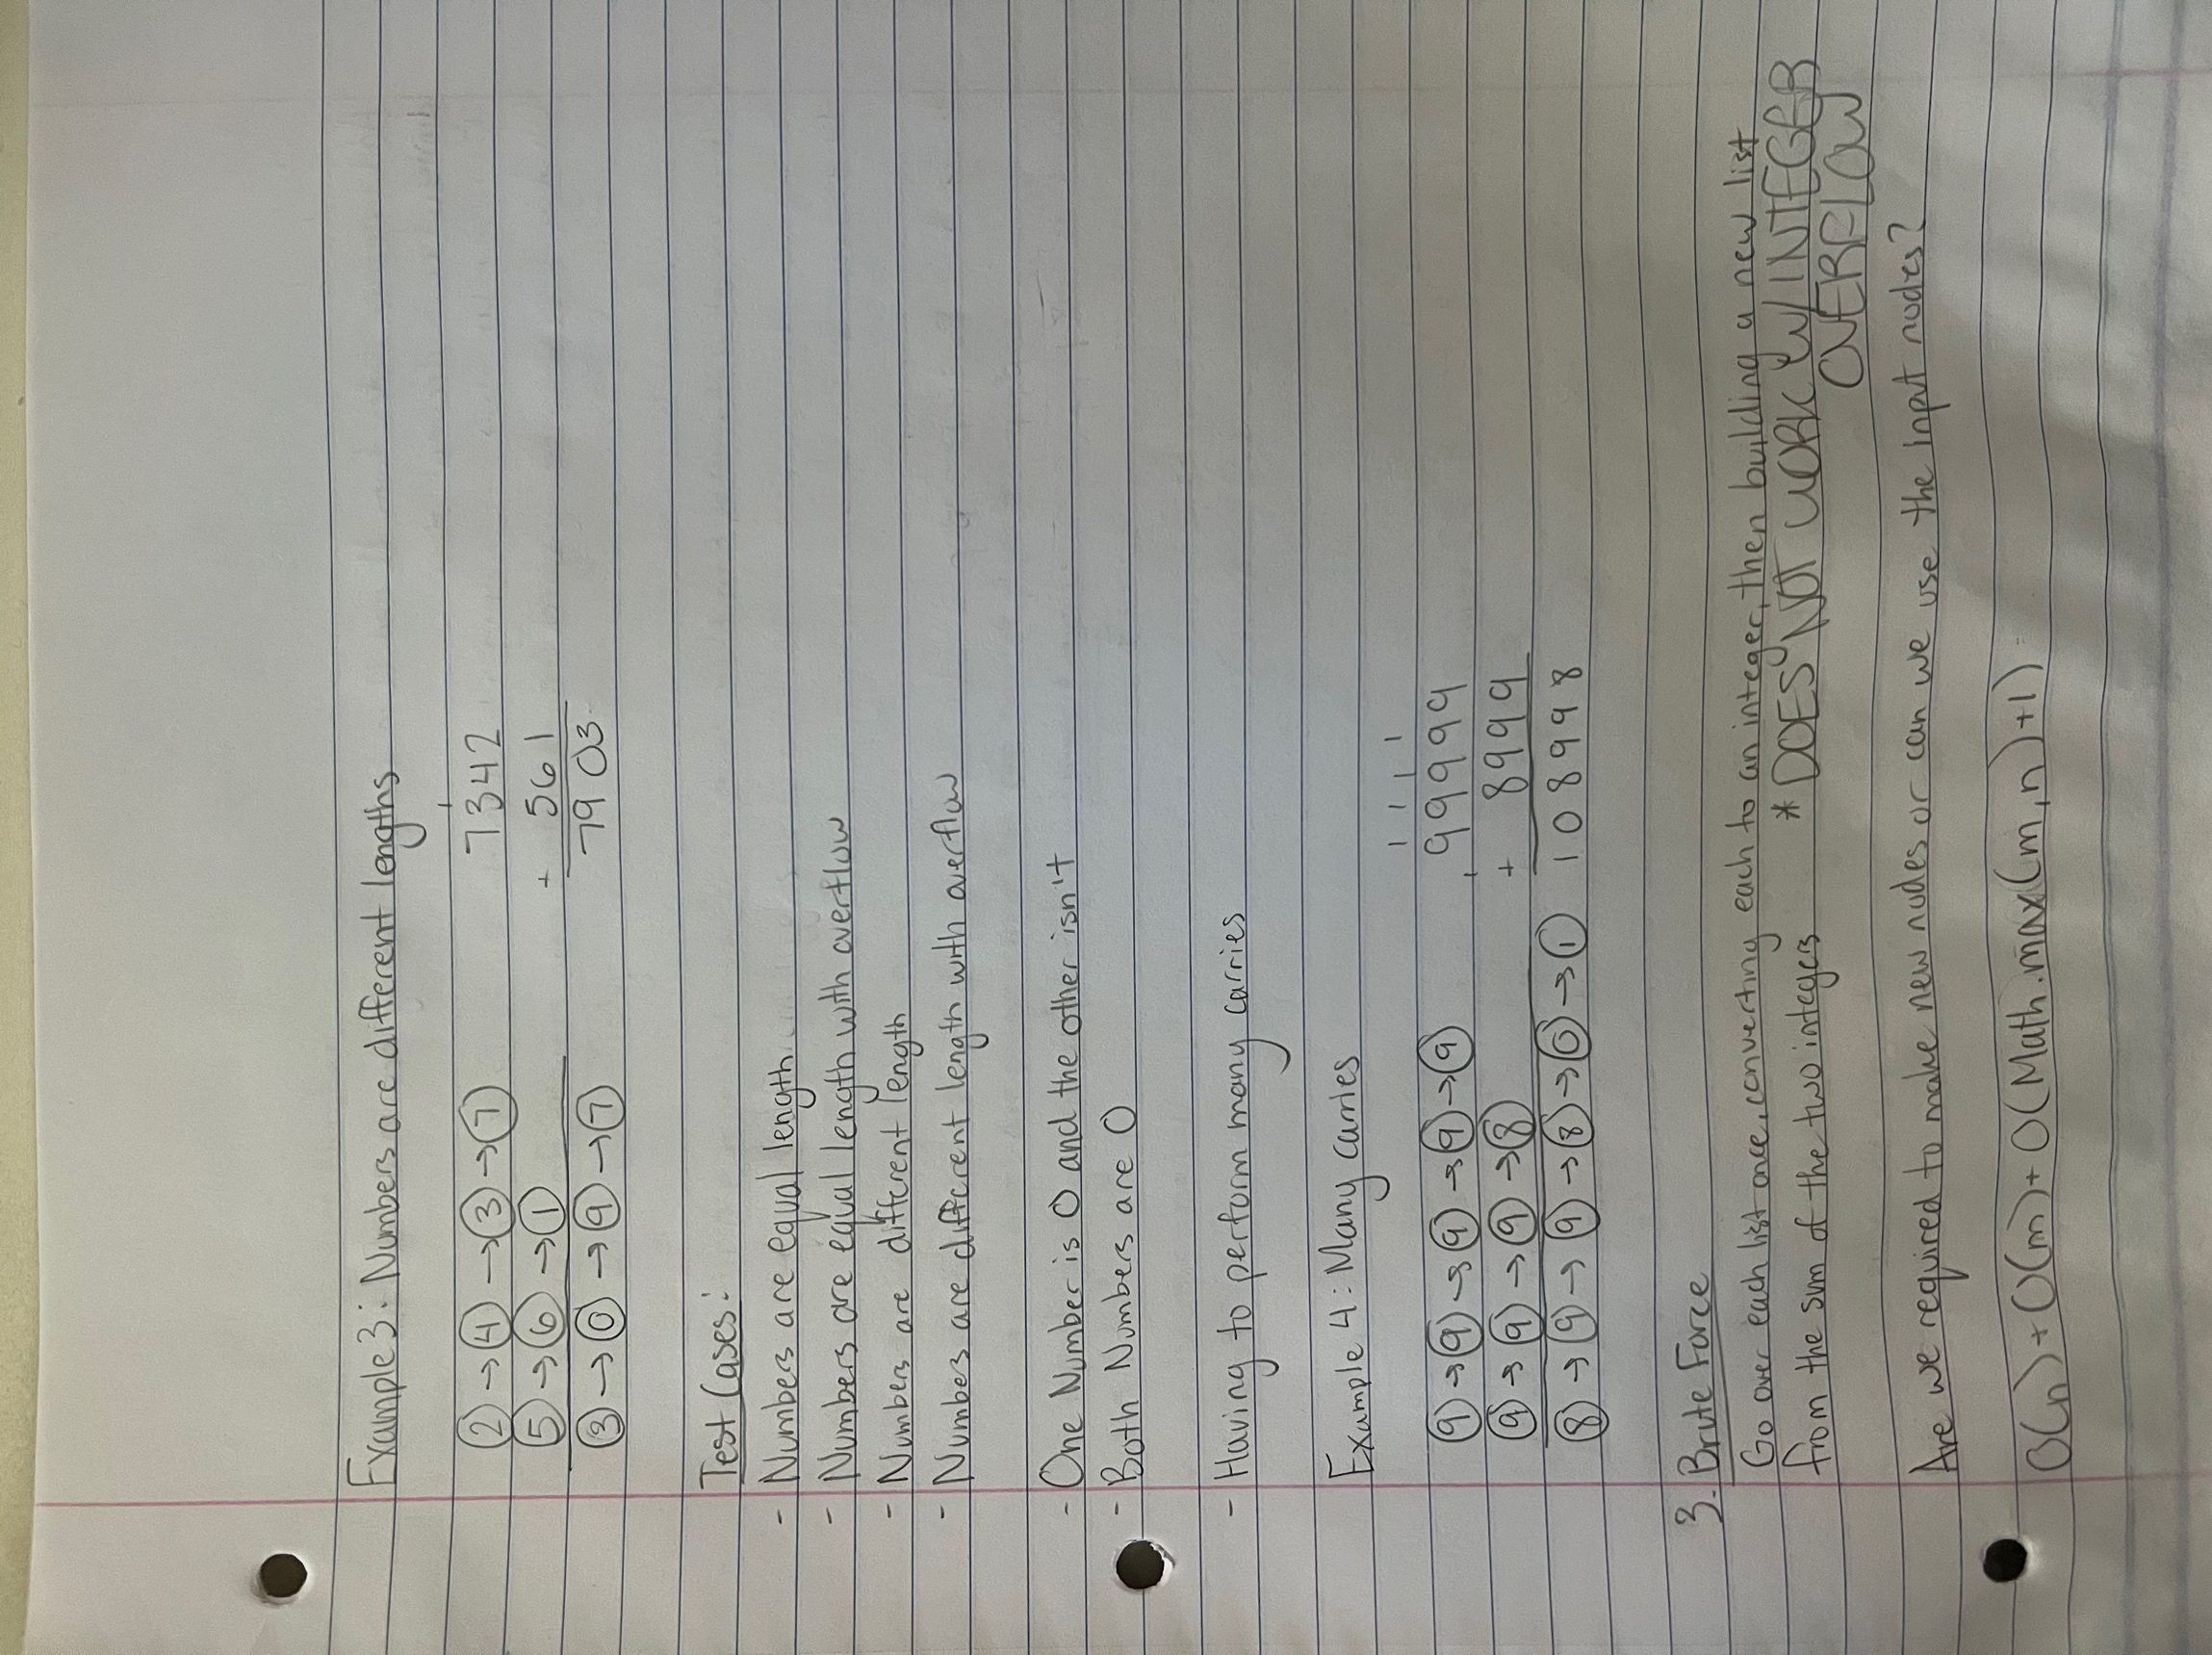 Example 3: Numbers are different lengths
1
2 → 4 → 3 → 7 7342
5 → 6 → 1 + 561
3 → 0 → 9 → 7 7903
Test Cases:
- Numbers are equal length
- Numbers are equal length with overflow
- Numbers are different length
- Numbers are different length with overflow
- One Number is 0 and the other isn't
- Both Numbers are 0
- Having to perform many carries
Example 4: Many carries
1 1 1 1
9 → 9 → 9 → 9 → 9 99999
9 → 9 → 9 → 8 + 8999
8 → 9 → 9 → 8 → 0 → 1 108998
3. Brute Force
Go over each list once, converting each to an integer, then building a new list
from the sum of the two integers * DOES NOT WORK W/ INTEGER
OVERFLOW
Are we required to make new nodes or can we use the input nodes?
O(n) + O(m) + O(Math.max(m,n)+1)